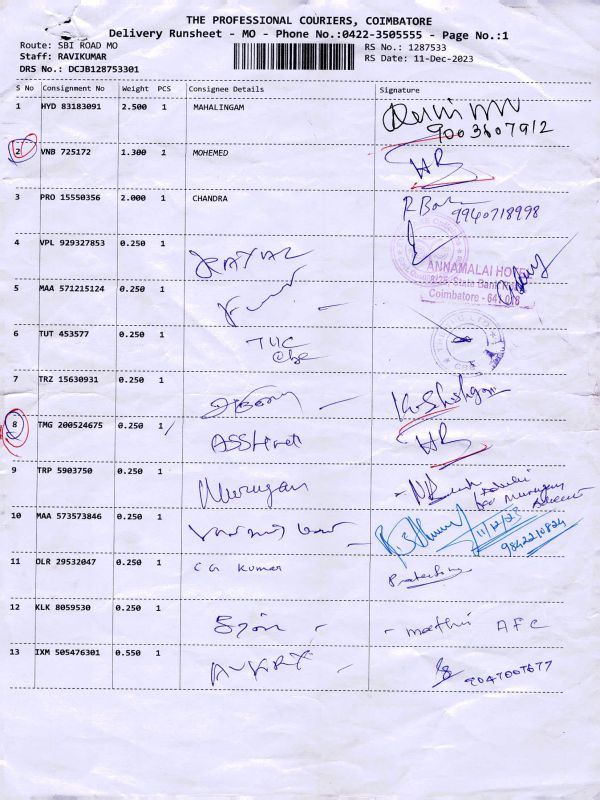 THE PROFESSIONAL COURIERS, COIMBATORE
Delivery Runsheet - MO - Phone No.:0422-3505555 - Page No.:1
Route: SBI ROAD MO
RS No.: 1287533
Staff: RAVIKUMAR
RS Date: 11-Dec-2023
DRS No.: DCJB128753301
S No Consignment No Weight PCS Consignee Details Signature
1 HYD 83183091 2.500 1 MAHALINGAM
9003607912
2 VNB 725172 1.300 1 MOHEMED HR
3 PRO 15550356 2.000 1 CHANDRA
9940718998
4 VPL 929327853 0.250 1
ANNAMALAI HOTEL
State Bank Road
Coimbatore - 641 018
5 MAA 571215124 0.250 1
6 TUT 453577 0.250 1 TUC
Cbe
7 TRZ 15630931 0.250 1
8 TMG 200524675 0.250 1 HR
9 TRP 5903750 0.250 1 Murugan
10 MAA 573573846 0.250 1
11/12/23
9842210824
11 OLR 29532047 0.250 1 C G Kumar
12 KLK 8059530 0.250 1 - AFC
13 IXM 505476301 0.550 1
9047007677